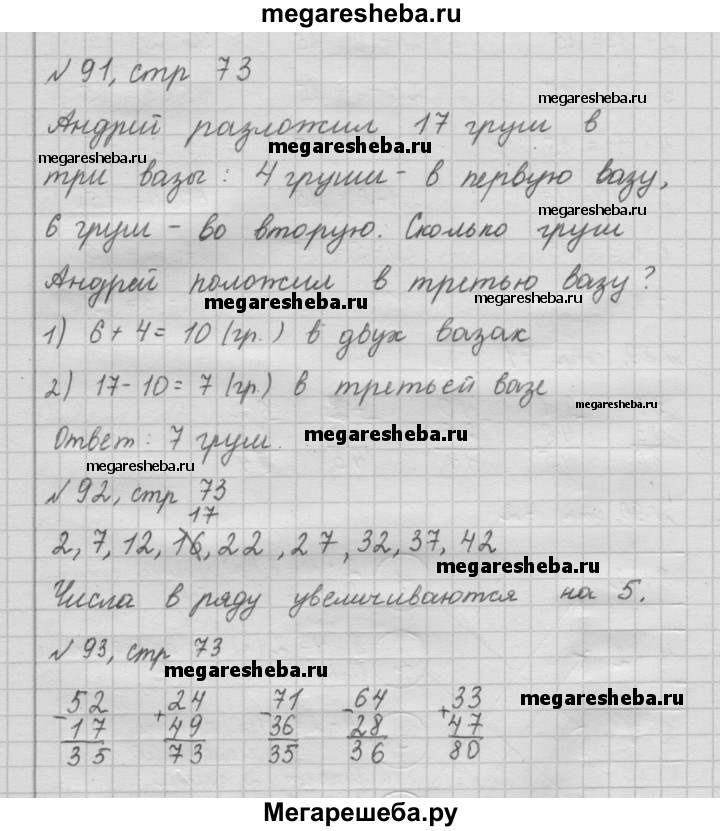 megaresheba.ru
№ 91, стр 73
megaresheba.ru
Андрей разложил 17 груш в
megaresheba.ru megaresheba.ru
три вазы: 4 груши - в первую вазу,
megaresheba.ru
6 груш - во вторую. Сколько груш
Андрей положил в третью вазу?
megaresheba.ru megaresheba.ru
1) 6 + 4 = 10 (гр.) в двух вазах
2) 17 - 10 = 7 (гр.) в третьей вазе
megaresheba.ru
Ответ: 7 груш. megaresheba.ru
megaresheba.ru
№ 92, стр 73
17
2, 7, 12, 16, 22, 27, 32, 37, 42
megaresheba.ru
Числа в ряду увеличиваются на 5.
№ 93, стр 73
megaresheba.ru
- 52 + 24 - 71 - 64 + 33 megaresheba.ru
17 49 36 28 47
35 73 35 36 80
Мегарешеба.ру